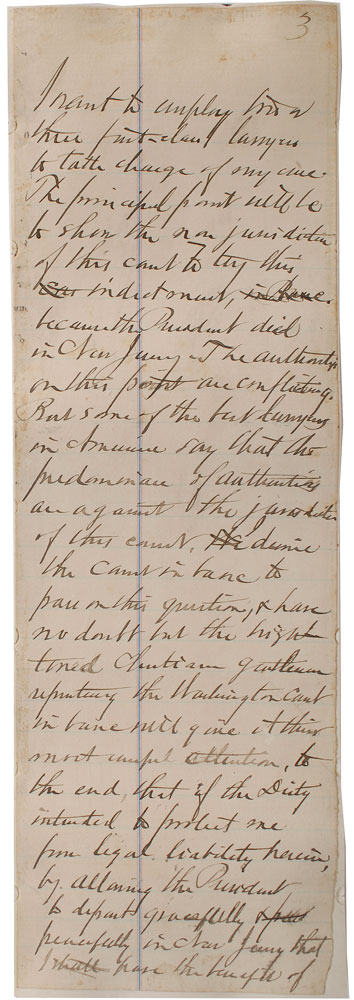 3
I want to employ two or
three first-class lawyers
to take charge of my case.
The principal point will be
to show the non jurisdiction
of this court to try this
indictment,
because the President died
in New Jersey. The authorities
on this point are conflicting.
But some of the best lawyers
in America say that the
predominance of authorities
are against the jurisdiction
of this court. desire
the Court in banc to
pass on this question, & have
no doubt but the high-
toned Christian gentlemen
representing the Washington Court
in banc will give it their
most careful attention, to
the end, that if the Deity
intended to protect me
from legal liability herein,
by allowing the President
to depart gracefully &
peacefully in New Jersey that
I shall have the benefit of